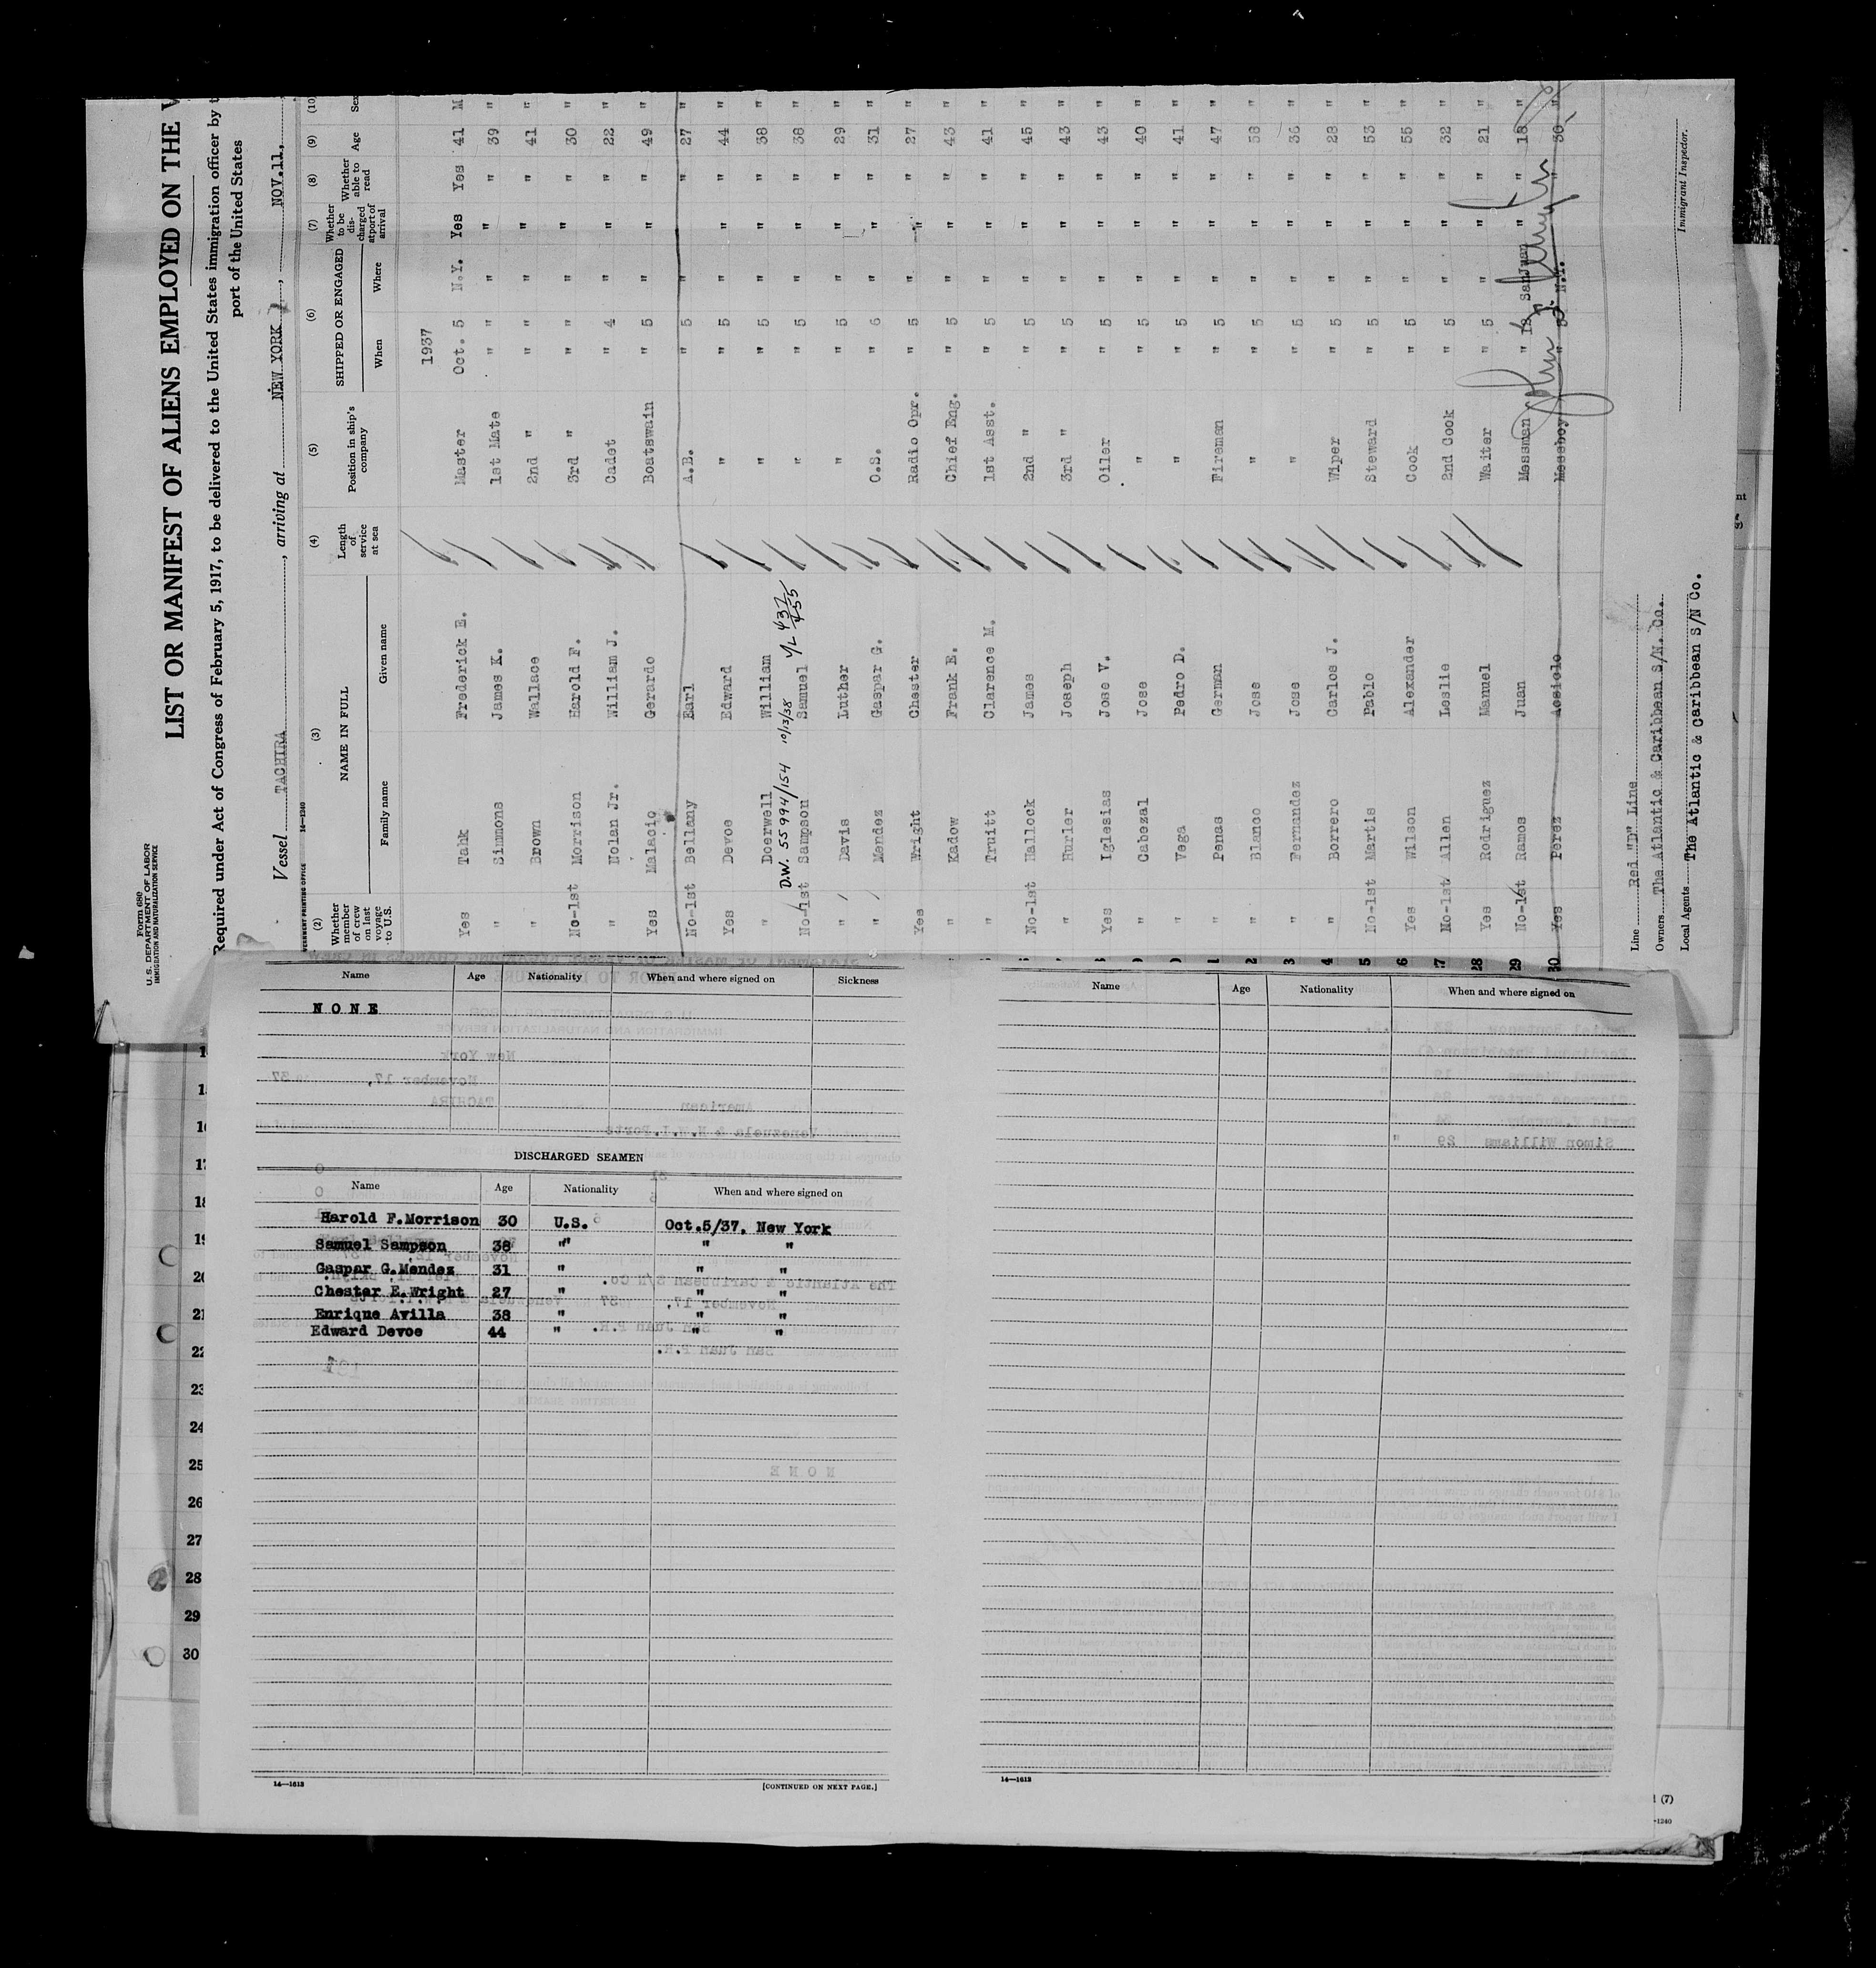 Form 680
U.S. DEPARTMENT OF LABOR
IMMIGRATION AND NATURALIZATION SERVICE
LIST OR MANIFEST OF ALIENS EMPLOYED ON THE V
Required under Act of Congress of February 5, 1917, to be delivered to the United States immigration officer by t
port of the United States
Vessel TACHIRA, arriving at NEW YORK, NOV.11,
14—1240
(2) (3) (4) (5) (6) (7) (8) (9) (10)
Whether member of crew on last voyage to U.S. NAME IN FULL Family name Given name Length of service at sea Position in ship's company SHIPPED OR ENGAGED When Where Whether to be discharged at port of arrival Whether able to read Age Sex
1937
Yes Tahk Frederick E. Master Oct. 5 N.Y. Yes Yes 41 M
" Simmons James K. 1st Mate " " " " " 39 "
" Brown Wallace 2nd " " " " " " 41 "
No-1st Morrison Harold F. 3rd " " " " " " 30 "
" Nolan Jr. William J. Cadet " 4 " " " 22 "
Yes Malacio Gerardo Boatswain " 5 " " " 49 "
No-1st Bellany Earl A.B. " 5 " " 27 "
Yes Devoe Edward " " 5 " " " 44 "
" Doerwell William " " 5 " " " 38 "
D.W. 55994/154 10/13/38 V/L 437/455
No-1st Sampson Samuel " " 5 " " " 38 "
" Davis Luther " " 5 " " " 29 "
" Mendez Gaspar G. O.S. " 6 " " " 31 "
Yes Wright Chester Radio Opr. " 5 " " " 27 "
" Kadow Frank E. Chief Eng. " 5 " " " 43 "
" Truitt Clarence M. 1st Asst. " 5 " " " 41 "
No-1st Hallock James 2nd " " 5 " " " 45 "
" Hurler Joseph 3rd " " 5 " " " 43 "
Yes Iglesias Jose V. Oiler " 5 " " " 43 "
" Cabezal Jose " " 5 " " " 40 "
" Vega Pedro D. " " 5 " " " 41 "
" Penas German Fireman " 5 " " " 47 "
" Blanco Jose " " 5 " " " 58 "
" Fernandez Jose " " 5 " " " 36 "
" Borrero Carlos J. Wiper " 5 " " " 28 "
No-1st Martis Pablo Steward " 5 " " " 53 "
Yes Wilson Alexander Cook " 5 " " " 55 "
No-1st Allen Leslie 2nd Cook " 5 " " " 32 "
Yes Rodriguez Manuel Waiter " 5 " " " 21 "
No-1st Ramos Juan Messman " 12 SanJuan " " 18 "
Yes Perez Messboy " N.Y. " 30 "
Line Red "D" Line
Owners The Atlantic & Caribbean S/N. Co.
Local Agents The Atlantic & Caribbean S/N Co.
Immigrant Inspector.
Name Age Nationality When and where signed on Sickness
NONE
DISCHARGED SEAMEN
Name Age Nationality When and where signed on
Harold F.Morrison 30 U.S. Oct.5/37, New York
Samuel Sampson 38 " " "
Gaspar G.Mendez 31 " " "
Chester E.Wright 27 " " "
Enrique Avilla 38 " " "
Edward Devoe 44 " " "
14—1613
[CONTINUED ON NEXT PAGE.]
Name Age Nationality When and where signed on
14—1613
20
21
22
23
24
25
26
27
28
29
30
(7)